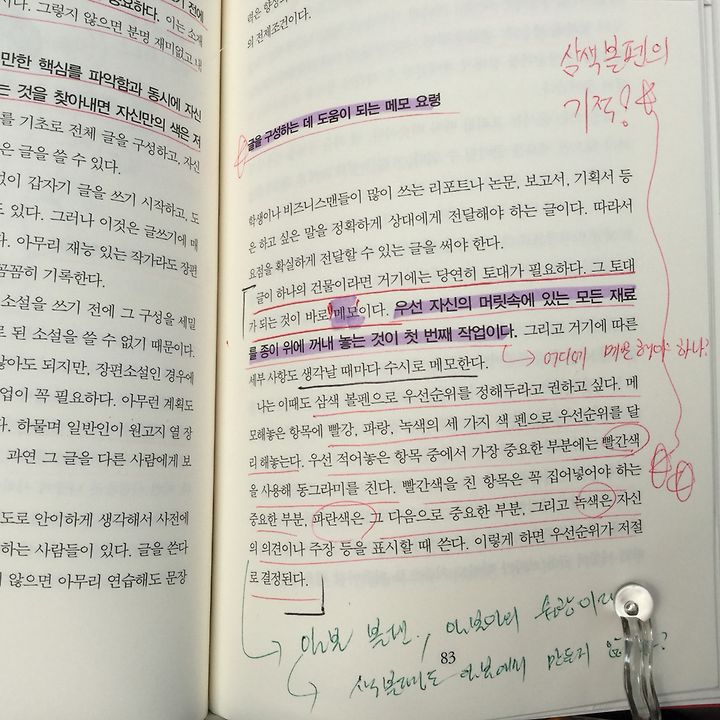 전에
중요하다. 이는 소재
이다. 그렇지 않으면 분명 재미없고
만한 핵심를 파악함과 동시에 자신
는 것을 찾아내면 자신만의 색은 저
를 기초로 전체 글을 구성하고, 자신
은 글을 쓸 수 있다.
없이 갑자기 글을 쓰기 시작하고, 도
도 있다. 그러나 이것은 글쓰기에 매
다. 아무리 재능 있는 작가라도 장편
꼼꼼히 기록한다.
소설을 쓰기 전에 그 구성을 세밀
로 된 소설을 쓸 수 없기 때문이다.
않아도 되지만, 장편소설인 경우에
업이 꼭 필요하다. 아무런 계획도
다. 하물며 일반인이 원고지 열 장
과연 그 글을 다른 사람에게 보
도로 안이하게 생각해서 사전에
하는 사람들이 있다. 글을 쓴다
지 않으면 아무리 연습해도 문장
의 전제조건이다.
삼색볼펜의
기적?
글을 구성하는 데 도움이 되는 메모 요령
학생이나 비즈니스맨들이 많이 쓰는 리포트나 논문, 보고서, 기획서 등
은 하고 싶은 말을 정확하게 상대에게 전달해야 하는 글이다. 따라서
요점을 확실하게 전달할 수 있는 글을 써야 한다.
글이 하나의 건물이라면 거기에는 당연히 토대가 필요하다. 그 토대
가 되는 것이 바로 메모이다. 우선 자신의 머릿속에 있는 모든 재료
를 종이 위에 꺼내 놓는 것이 첫 번째 작업이다. 그리고 거기에 따른
세부 사항도 생각날 때마다 수시로 메모한다.
어디에 메모해야 하나?
나는 이때도 삼색 볼펜으로 우선순위를 정해두라고 권하고 싶다. 메
모해놓은 항목에 빨강, 파랑, 녹색의 세 가지 색 펜으로 우선순위를 달
리 해놓는다. 우선 적어놓은 항목 중에서 가장 중요한 부분에는 빨간색
을 사용해 동그라미를 친다. 빨간색을 친 항목은 꼭 집어넣어야 하는
중요한 부분, 파란색은 그 다음으로 중요한 부분, 그리고 녹색은 자신
의 의견이나 주장 등을 표시할 때 쓴다. 이렇게 하면 우선순위가 저절
로 결정된다.
볼펜,
83
삼색볼펜도 일본에서 만든지